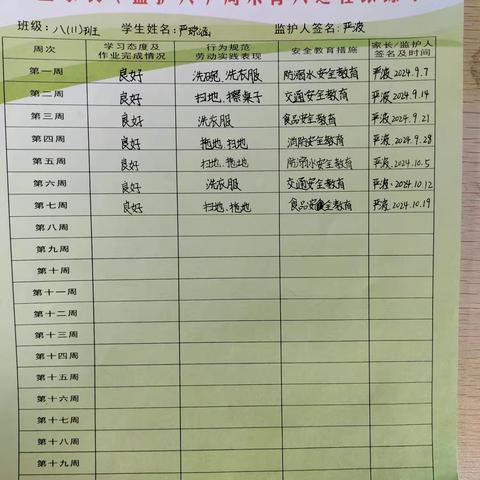 班级:八(11)班 学生姓名:严琼涵 监护人签名:严波
周次 学习态度及作业完成情况 行为规范劳动实践表现 安全教育措施 家长/监护人签名及时间
第一周 良好 洗碗、洗衣服 防溺水安全教育 严波 2024.9.7
第二周 良好 扫地、擦桌子 交通安全教育 严波 2024.9.14
第三周 良好 洗衣服 食品安全教育 严波 2024.9.21
第四周 良好 拖地、扫地 消防安全教育 严波 2024.9.28
第五周 良好 扫地、拖地 防溺水安全教育 严波 2024.10.5
第六周 良好 洗衣服 交通安全教育 严波 2024.10.12
第七周 良好 扫地、拖地 食品安全教育 严波 2024.10.19
第八周
第九周
第十周
第十一周
第十二周
第十三周
第十四周
第十五周
第十六周
第十七周
第十八周
第十九周